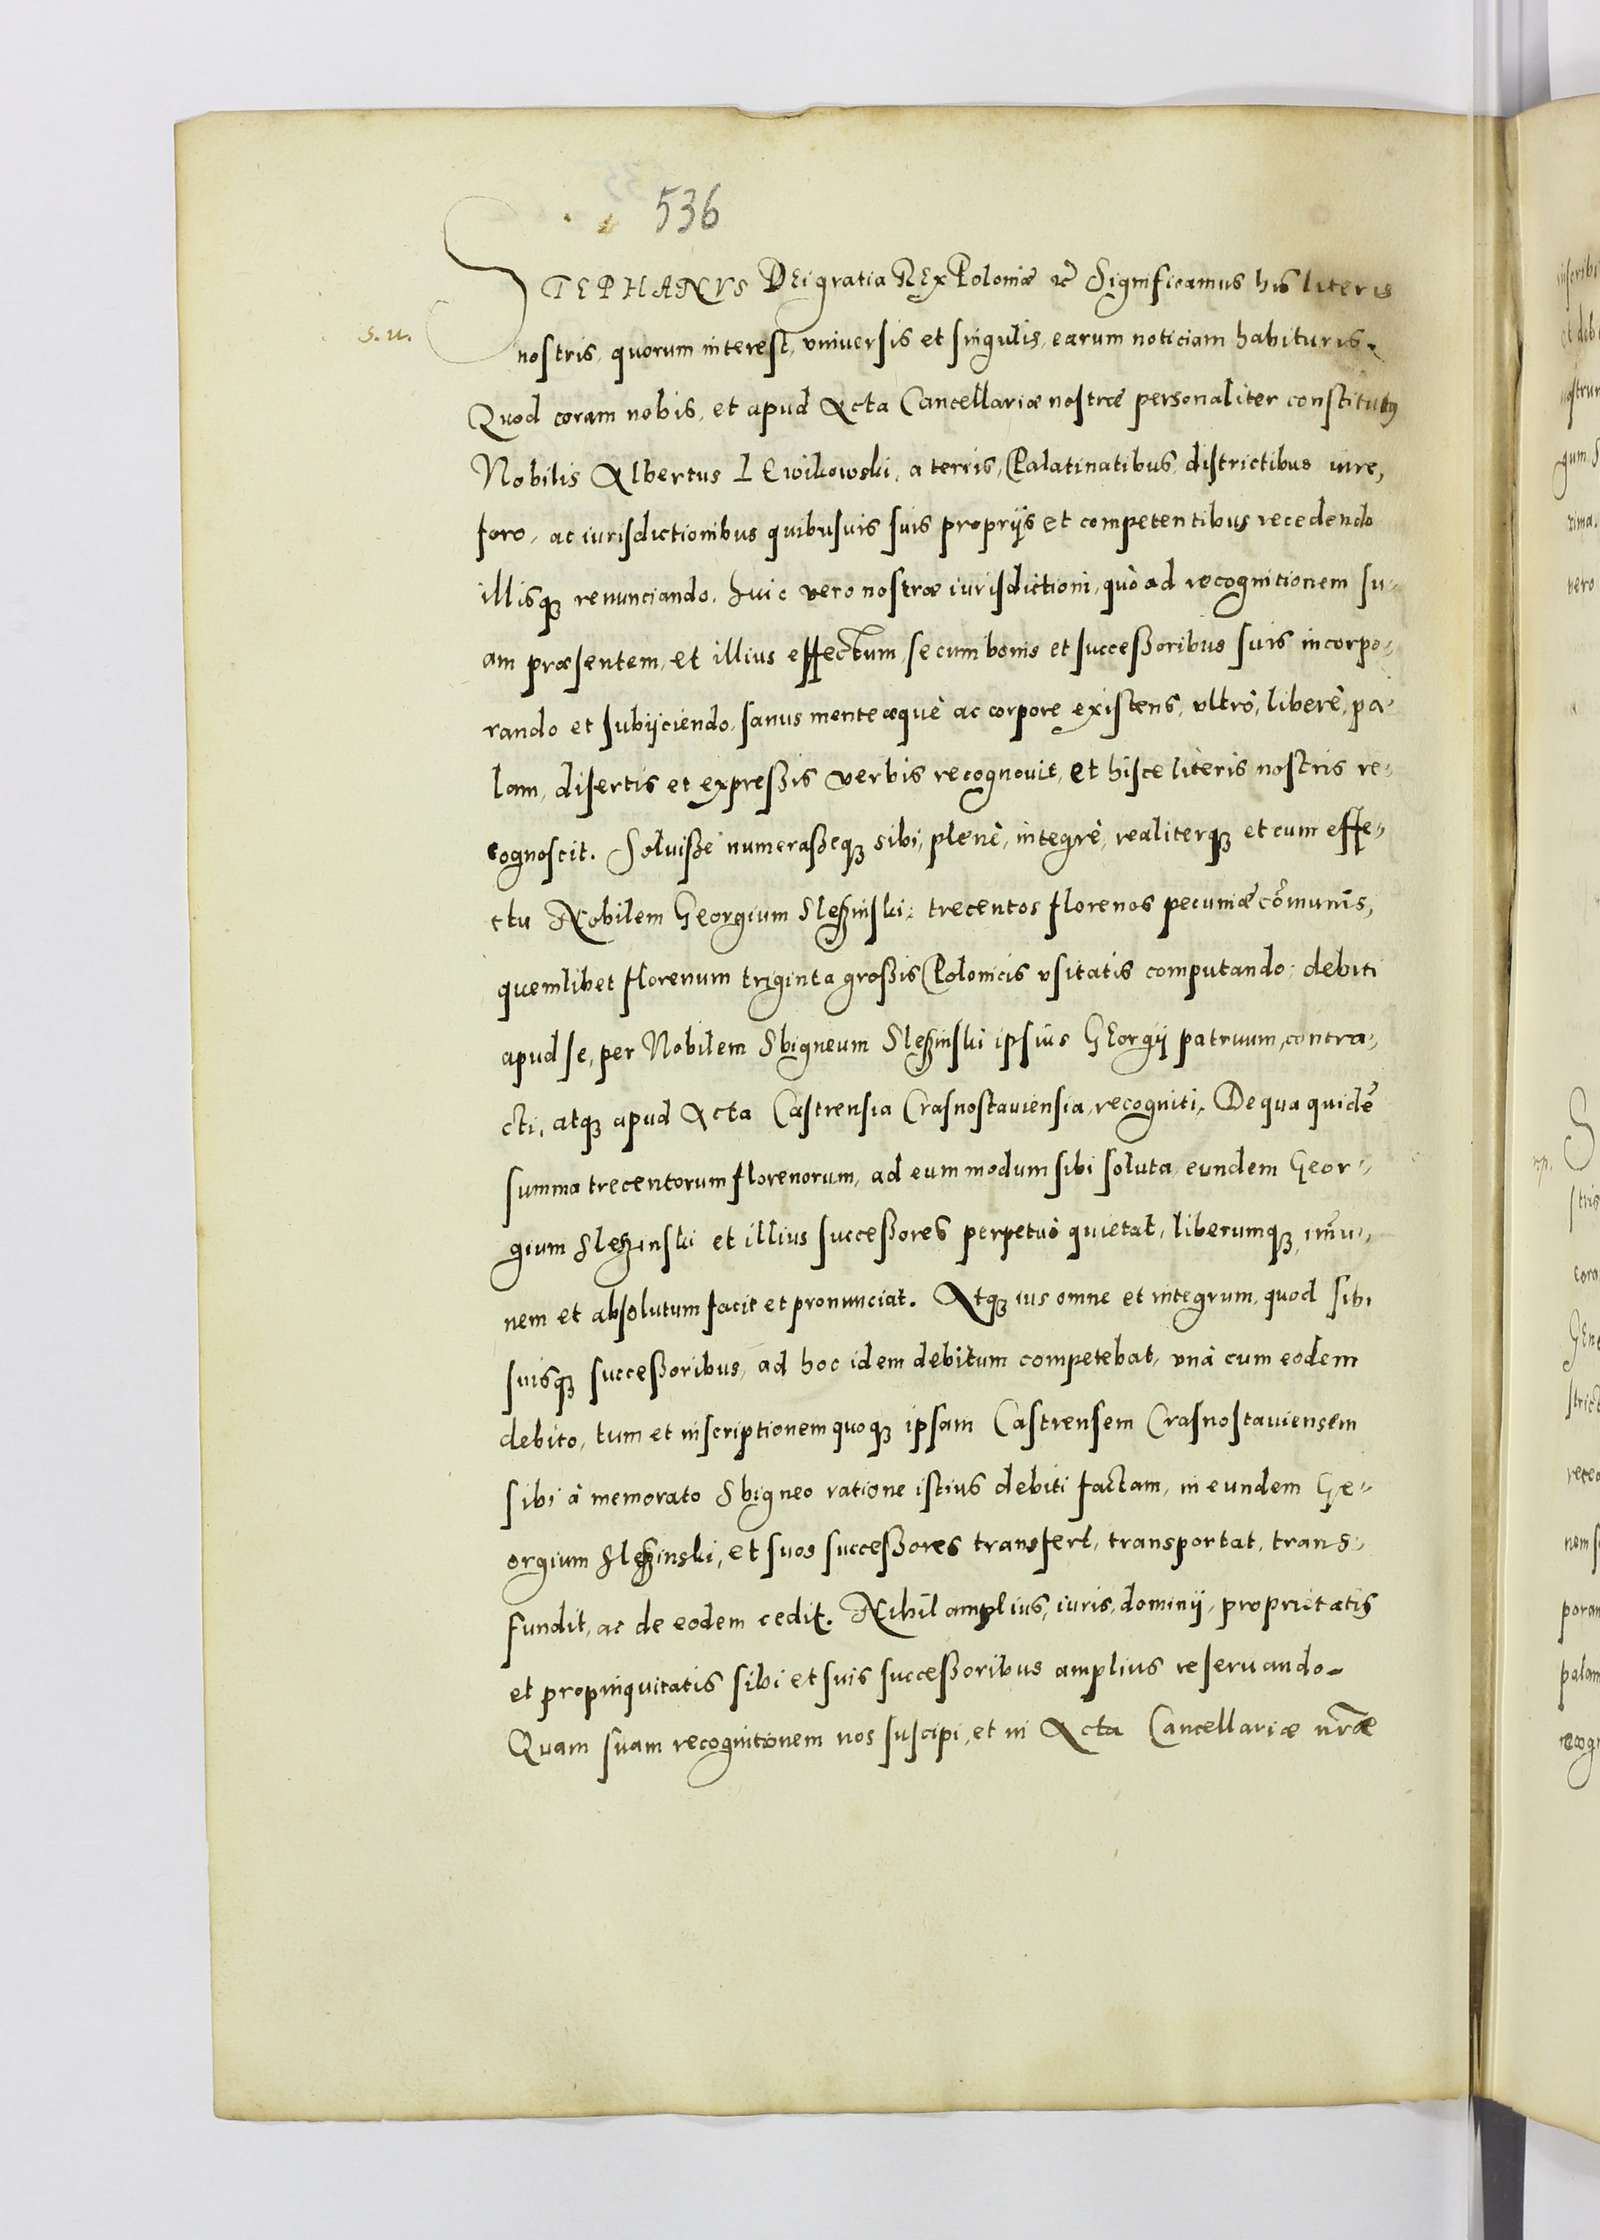 536
STEPHANVS DEi gratia REx Poloniæ etc̃ Significamus his literis
s. u.
nostris, quorum interest, vniuersis et singulis, earum noticiam habituris.
Quod coram nobis, et apud Acta Cancellariæ nostræ personaliter constitutus
Nobilis Albertus LEwikowski, a terris, Palatinatibus, districtibus iure,
foro, ac iurisdictionibus quibusuis suis proprijs et competentibus recedendo
illisq; renunciando, huic vero nostræ iurisdictioni, quò ad recognitionem su-
am præsentem, et illius effectum, se cum bonis et successoribus suis incorpo-
rando et subijciendo, sanus mente æquè ac corpore existens, vltrò, liberè, pa-
lam, disertis et expressis verbis recognouit, et hisce literis nostris re-
cognoscit. Soluisse numerasseq; sibi, plenè, integrè, realiterq; et cum effe-
ctu Nobilem Georgium Slezinski: trecentos florenos pecuniæ com̃unis,
quemlibet florenum triginta grossis Polonicis vsitatis computando: debiti
apud se, per Nobilem Sbigneum Slezinski ipsius GEorgij patruum, contra-
cti, atq; apud Acta Castrensia Crasnostauiensia, recogniti. De qua quidẽ
summa trecentorum florenorum, ad eum modum sibi soluta, eundem Geor-
gium Slezinski et illius successores perpetuò quietat, liberumq;, im̃u-
nem et absolutum facit et pronunciat. Atq; ius omne et integrum, quod sibi
suisq; successoribus, ad hoc idem debitum competebat, vnà cum eodem
debito, tum et inscriptionem quoq; ipsam Castrensem Crasnostauiensem
sibi à memorato Sbigneo ratione istius debiti factam, in eundem Ge-
orgium Slezinski, et suos successores transfert, transportat, trans-
fundit, ac de eodem cedit. Nihil amplius, iuris, dominij, proprietatis
et propinquitatis sibi et suis successoribus amplius reseruando.
Quam suam recognitionem nos suscipi, et in Acta Cancellariæ nr̃æ